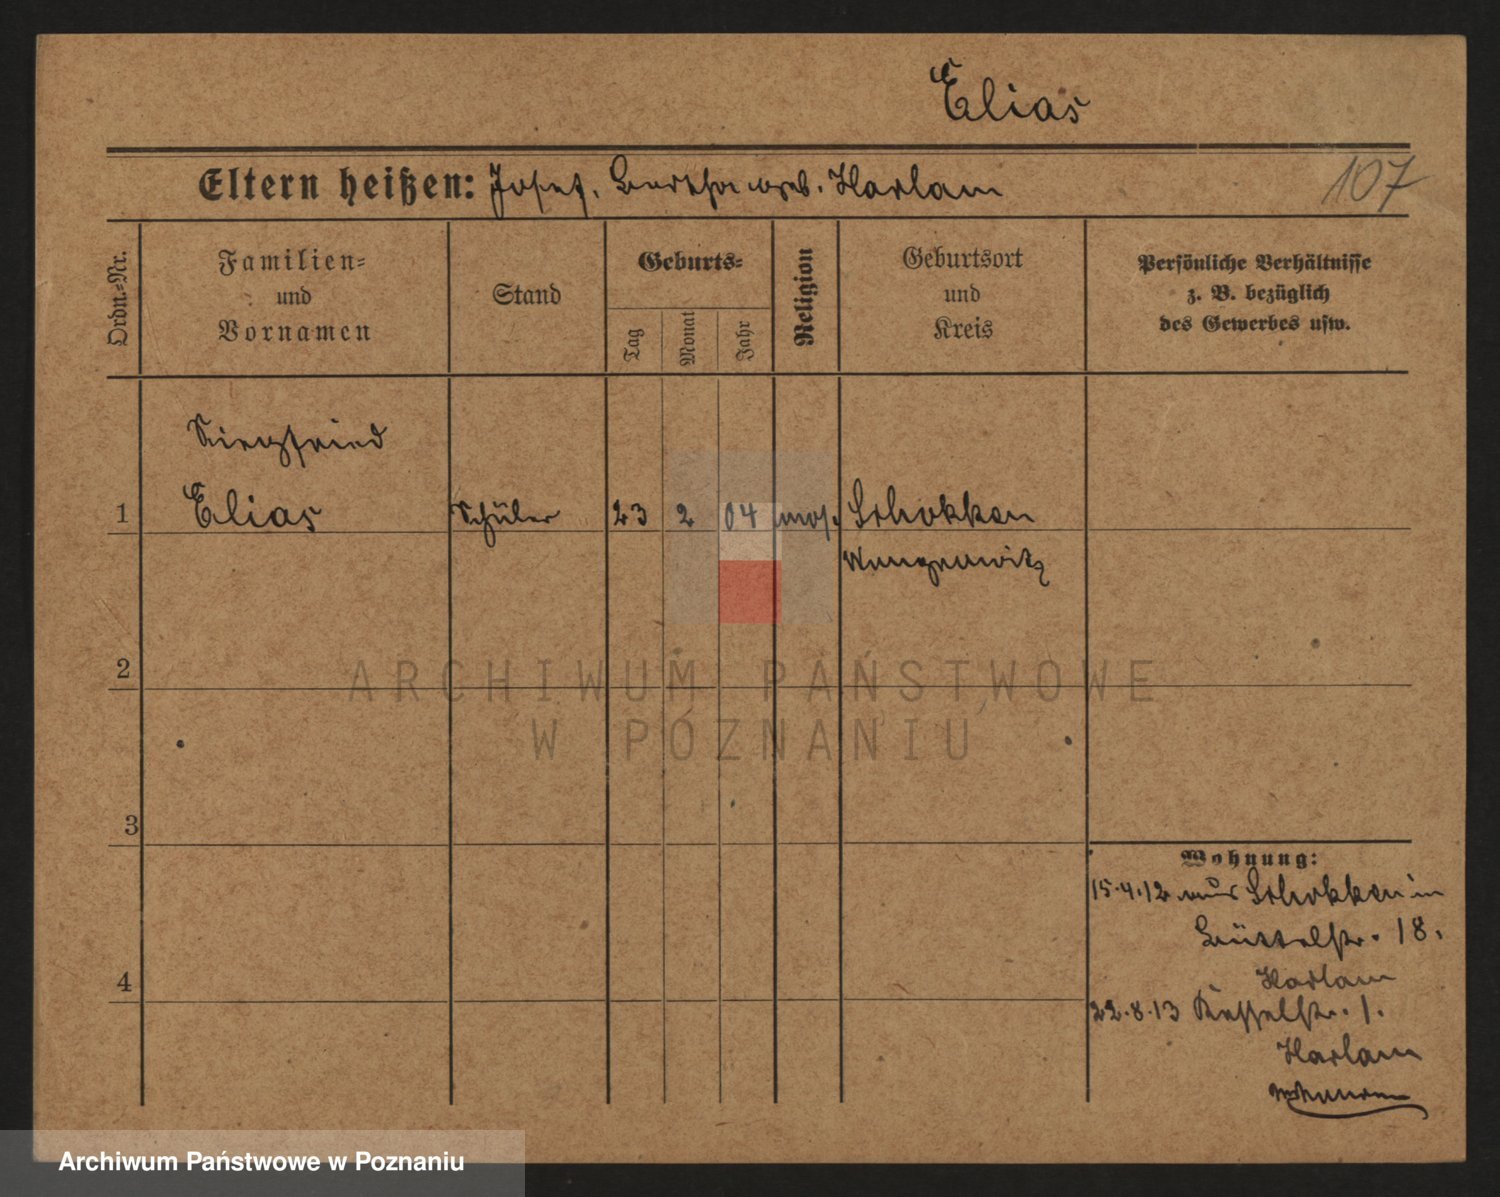 Elias
Eltern heißen: Josef. Bertha geb. Harlam
107
Ordn.-Nr.
Familien-
und
Vornamen
Stand
Geburts-
Tag
Monat
Jahr
Religion
Geburtsort
und
Kreis
Persönliche Verhältnisse
z. B. bezüglich
des Gewerbes usw.
Siegfried
1 Elias Schüler 23 2 04 mos. Schokken
Wongrowitz
2
ARCHIWUM PAŃSTWOWE
W POZNANIU
3
Wohnung:
15.4.12 aus Schokken in
Büttelstr. 18.
Harlam
4
22.8.13 Kesselstr. 1.
Harlam
Archiwum Państwowe w Poznaniu